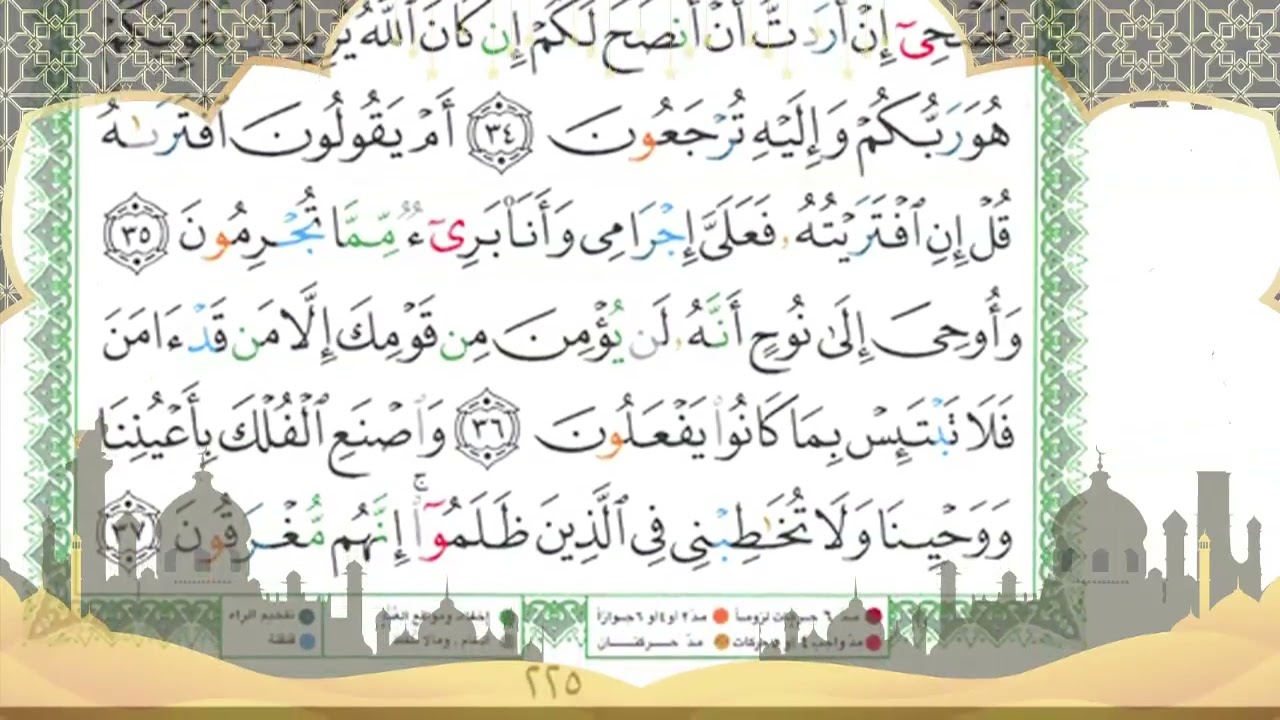 نُصْحِىٓ إِنْ أَرَدتُّ أَنْ أَنصَحَ لَكُمْ إِن كَانَ ٱللَّهُ يُرِيدُ
هُوَ رَبُّكُمْ وَإِلَيْهِ تُرْجَعُونَ ٣٤ أَمْ يَقُولُونَ ٱفْتَرَىٰهُ
قُلْ إِنِ ٱفْتَرَيْتُهُۥ فَعَلَىَّ إِجْرَامِى وَأَنَا۠ بَرِىٓءٌ مِّمَّا تُجْرِمُونَ ٣٥
وَأُوحِىَ إِلَىٰ نُوحٍ أَنَّهُۥ لَن يُؤْمِنَ مِن قَوْمِكَ إِلَّا مَن قَدْ ءَامَنَ
فَلَا تَبْتَئِسْ بِمَا كَانُوا۟ يَفْعَلُونَ ٣٦ وَٱصْنَعِ ٱلْفُلْكَ بِأَعْيُنِنَا
وَوَحْيِنَا وَلَا تُخَٰطِبْنِى فِى ٱلَّذِينَ ظَلَمُوٓا۟ ۚ إِنَّهُم مُّغْرَقُونَ ٣٧
مد ٦ حركات لزوماً مد ٢ أو ٤ أو ٦ جوازاً إخفاء ومواقع الغنّة تفخيم الراء
مدّ حركتان قلقلة
٢٢٥